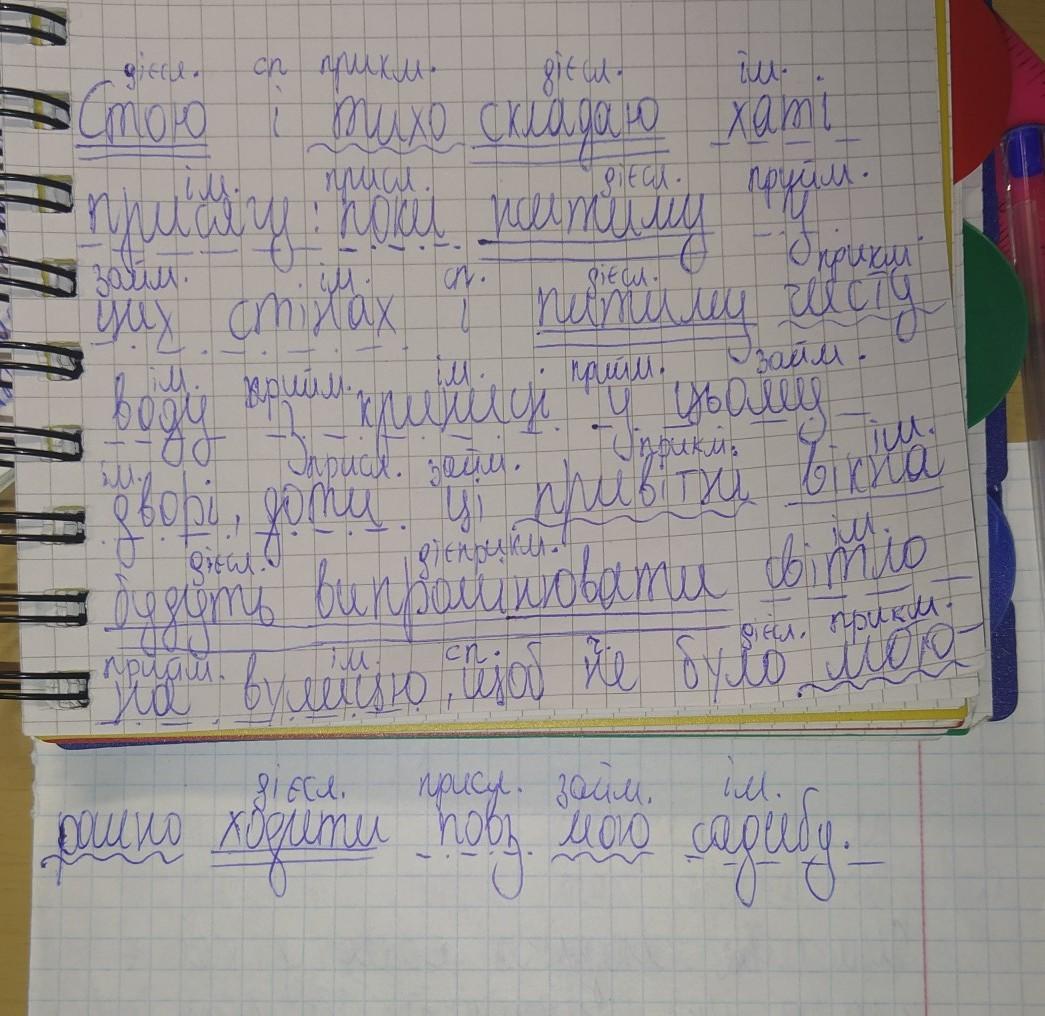 дієсл. сп прикм. дієсл. ім.
Стою і тихо складаю хаті
ім. присл. дієсл. пруйм.
присягу: поки житиму у
займ. ім. сп. дієсл. прикм
цих стінах і питиму чисту
ім. прийм. ім. прийм. займ.
воду з криниці у цьому
ім. присл. займ. прикм. ім.
дворі, доти ці привітні вікна
дієсл. дієприкм. ім.
будуть випромінювати світло
прийм. ім. сп. ч. дієсл. прикм.
на вулицю, щоб не було мото-
дієсл. присл. займ. ім.
рошно ходити повз мою садибу.